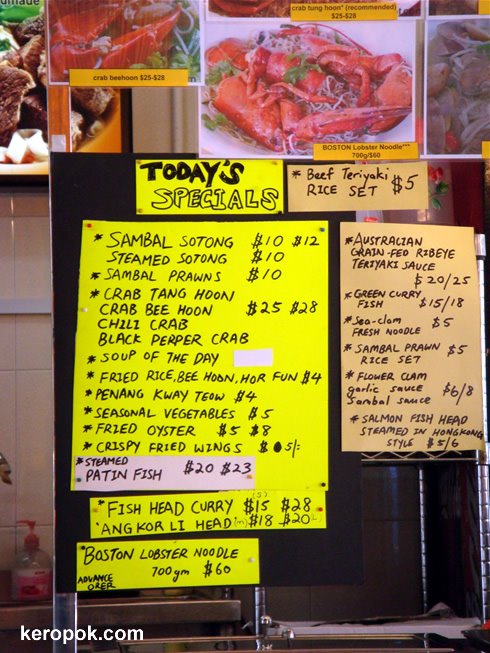 crab tung hoon* (recommended)
$25-$28
crab beehoon $25-$28
BOSTON Lobster Noodle***
700g/$60
TODAY'S
SPECIALS
* Beef Teriyaki
RICE SET $5
* SAMBAL SOTONG $10 $12
STEAMED SOTONG $10
* SAMBAL PRAWNS $10
* CRAB TANG HOON
CRAB BEE HOON $25 $28
CHILI CRAB
BLACK PEPPER CRAB
* SOUP OF THE DAY
* FRIED RICE, BEE HOON, HOR FUN $4
* PENANG KWAY TEOW $4
* SEASONAL VEGETABLES $5
* FRIED OYSTER $5 $8
* CRISPY FRIED WINGS $ 5/-
* STEAMED
PATIN FISH $20 $23
* FISH HEAD CURRY (S) $15 $28
'ANGKOR LI HEAD (m) $18 $20 (L)
BOSTON LOBSTER NOODLE
700gm $60
ADVANCE
ORER
* AUSTRALIAN
GRAIN-FED RIBEYE
TERIYAKI SAUCE
$20/25
* GREEN CURRY
FISH $15/18
* Sea-clam
FRESH NOODLE $5
* SAMBAL PRAWN
RICE SET $5
* FLOWER CLAM
garlic sauce
Sambal sauce $6/8
* SALMON FISH HEAD
STEAMED IN HONGKONG
STYLE $5/6
keropok.com